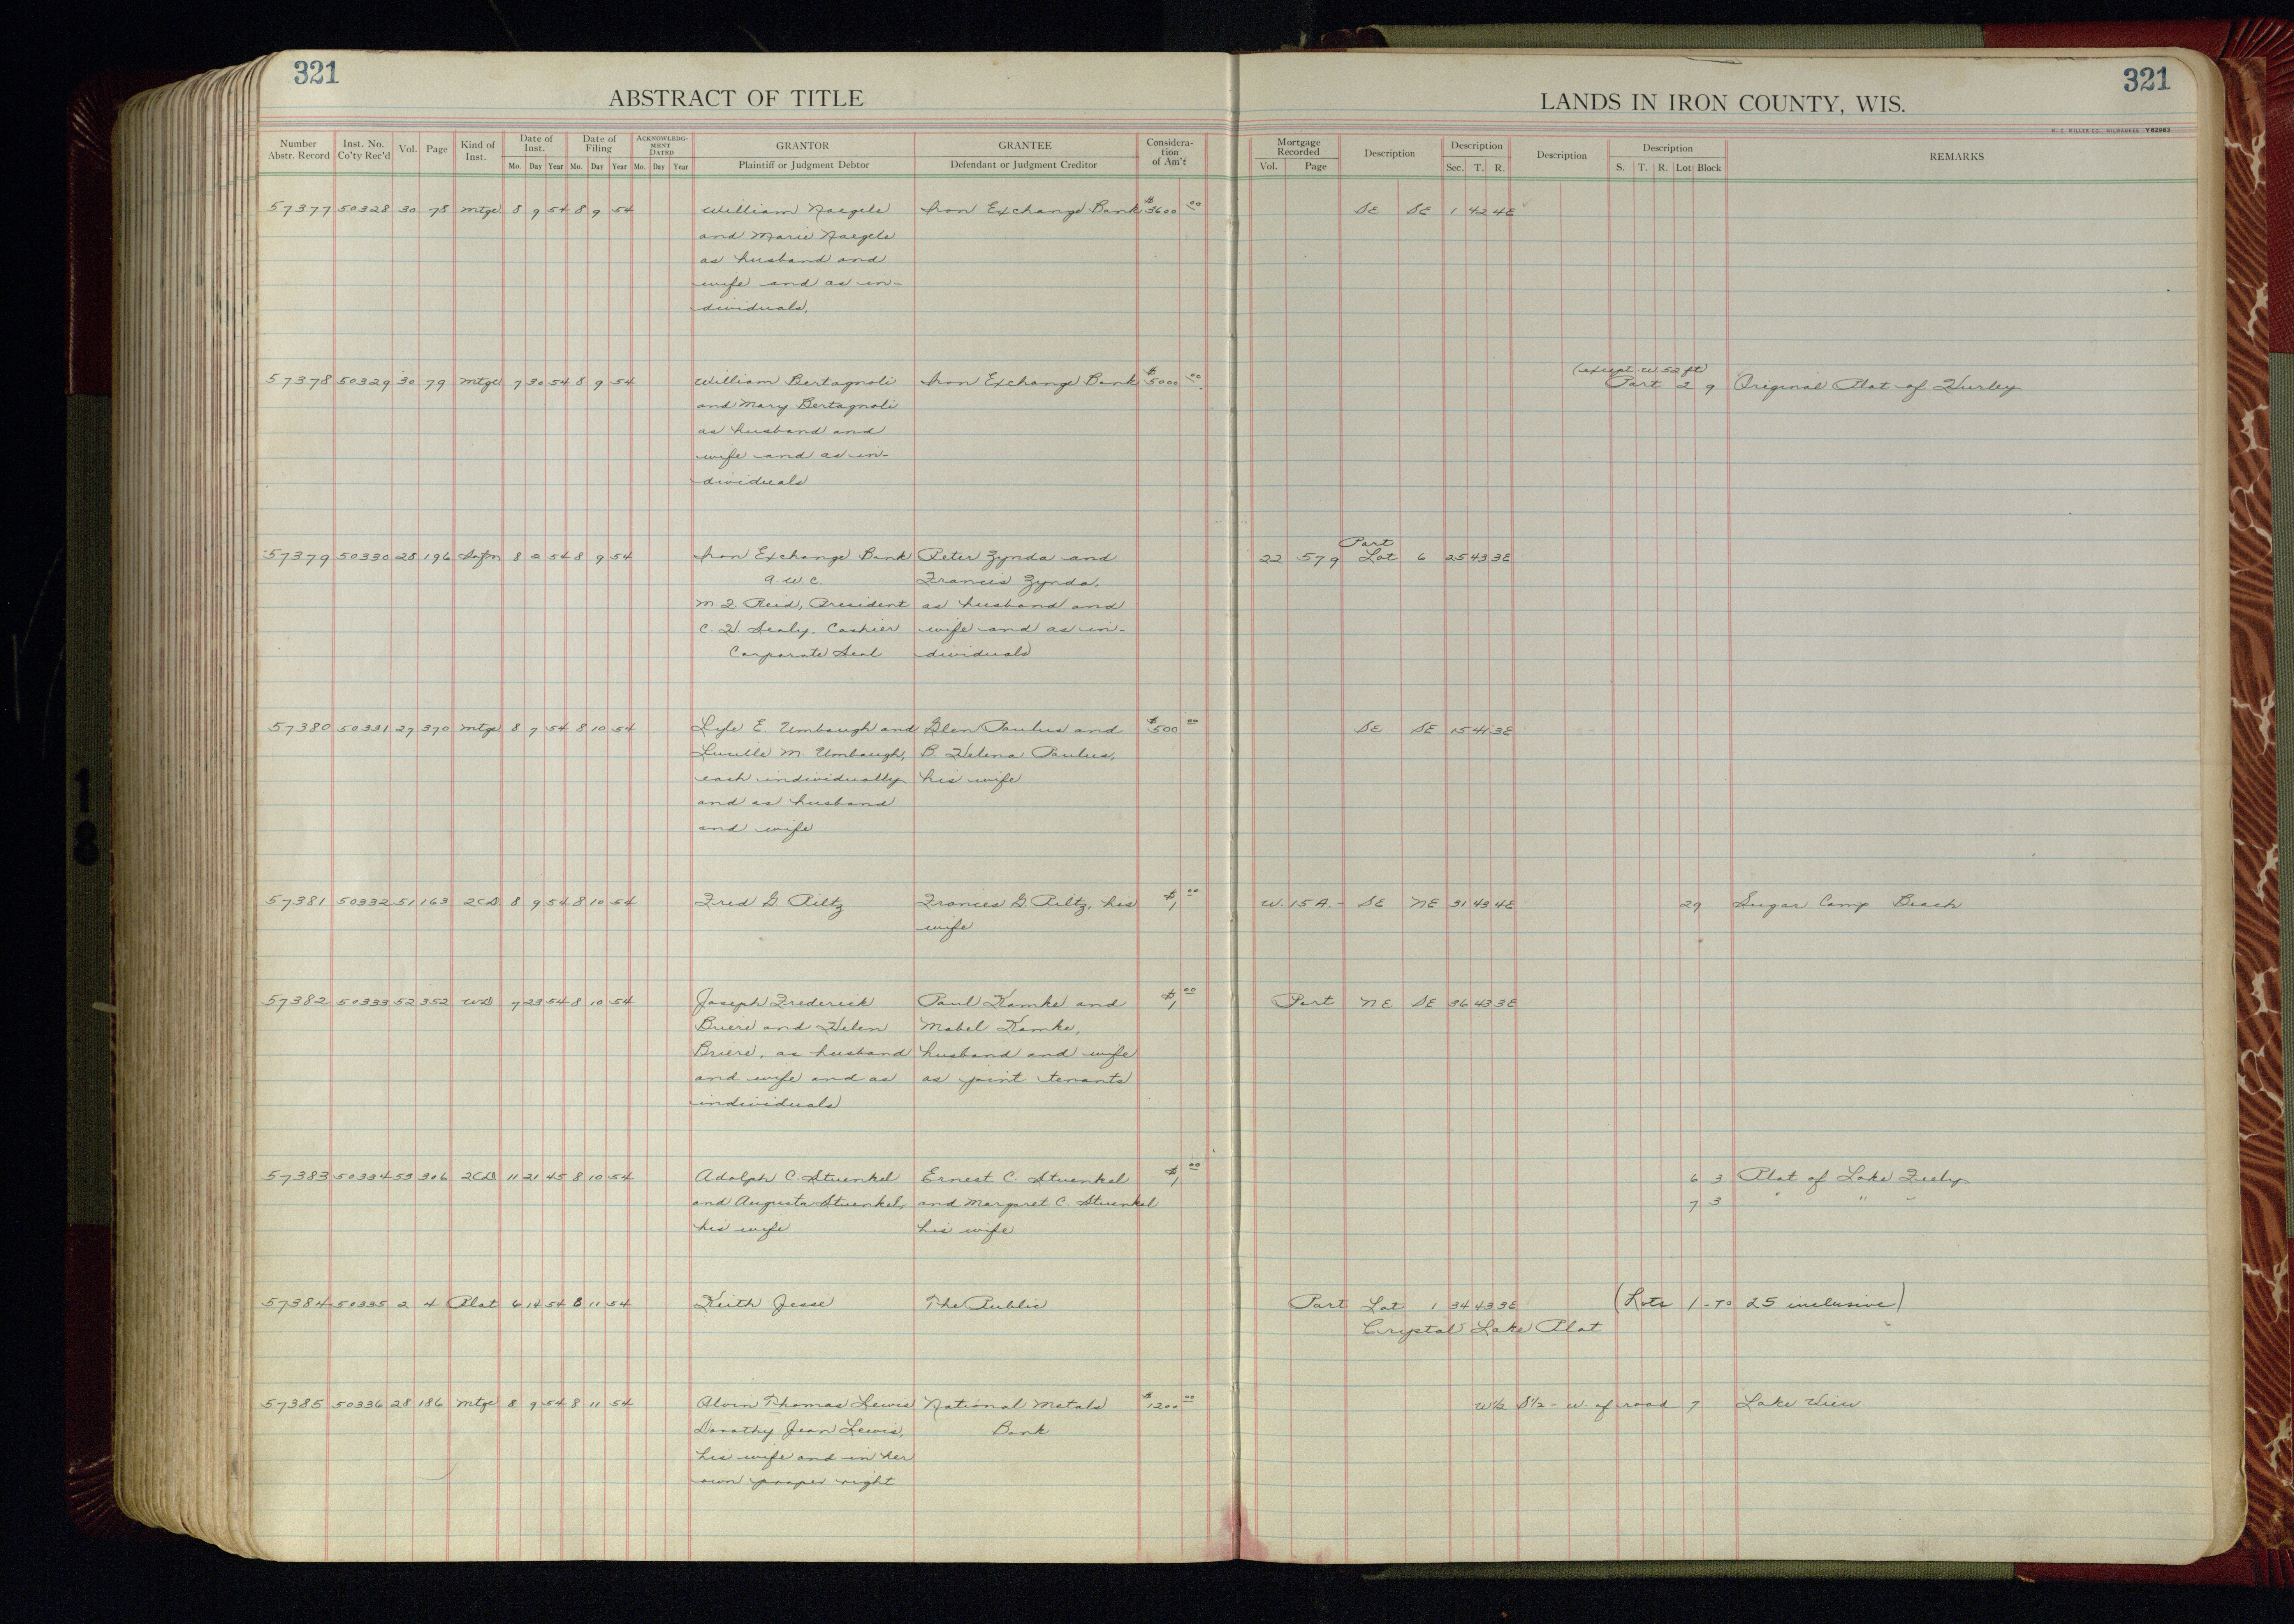 321
ABSTRACT OF TITLE
LANDS IN IRON COUNTY, WIS.
321
H. C. MILLER CO., MILWAUKEE V62963
Number Abstr. Record | Inst. No. Co'ty Rec'd | Vol. | Page | Kind of Inst. | Date of Inst. Mo. Day Year | Date of Filing Mo. Day Year | ACKNOWLEDGMENT DATED Mo. Day Year | GRANTOR Plaintiff or Judgment Debtor | GRANTEE Defendant or Judgment Creditor | Consideration of Am't | Mortgage Recorded Vol. Page | Description | Description Sec. T. R. | Description | Description S. T. R. Lot Block | REMARKS
57377 50328 30 78 Mtge 8 9 54 8 9 54 William Naegele Iron Exchange Bank $3600 00 SE SE 1 42 4E
and Marie Naegele
as husband and
wife and as in-
dividuals.
(except W. 52 ft)
57378 50329 30 79 Mtge 7 30 54 8 9 54 William Bertagnoli Iron Exchange Bank $5000 00 Part 2 9 Original Plat of Hurley
and Mary Bertagnoli
as husband and
wife and as in-
dividuals
Part
57379 50330 28 196 Satfn 8 2 54 8 9 54 Iron Exchange Bank Peter Zynda and 22 579 Lot 6 25 43 3E
a.w.c. Frances Zynda,
M. F. Reid, President as husband and
C. H. Sealy. Cashier wife and as in-
Corporate Seal dividuals
57380 50331 27 370 Mtge 8 7 54 8 10 54 Lyle E. Umbaugh and Glen Paulus and $500 00 SE SE 15 41 3E
Lucille M. Umbaugh, B. Helena Paulus,
each individually his wife
and as husband
and wife
57381 50332 51 163 2CD 8 9 54 8 10 54 Fred G. Piltz Frances G. Piltz, his $1 00 W. 15 A. - SE NE 31 43 4E 29 Sugar Camp Beach
wife
57382 50333 52 352 WD 7 23 54 8 10 54 Joseph Frederick Paul Kamke and $1 00 Part NE SE 36 43 3E
Briere and Helen Mabel Kamke,
Briere, as husband husband and wife
and wife and as as joint tenants
individuals
57383 50334 53 306 2CD 11 21 45 8 10 54 Adolph C. Stuenkel Ernest C. Stuenkel $1 00 6 3 Plat of Lake Feely
and Augusta Stuenkel, and Margaret C. Stuenkel 7 3 " " "
his wife his wife
57384 50335 2 4 Plat 6 14 54 8 11 54 Keith Jesse The Public Part Lot 1 34 43 3E (Lots 1 - to 25 inclusive)
Crystal Lake Plat
57385 50336 28 186 Mtge 8 9 54 8 11 54 Alvin Thomas Lewis National Metals $1200 00 W½ S½ - W. of road 7 Lake View
Dorothy Jean Lewis, Bank
his wife and in her
own proper right
18